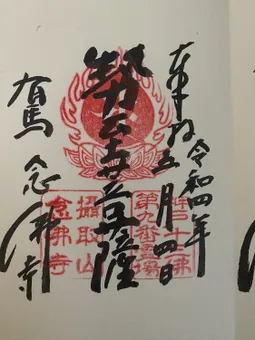 令和四年
奉拝 五月四日
勢至菩薩
有馬
念佛寺
十三佛
第九番霊場
攝取山
念佛寺